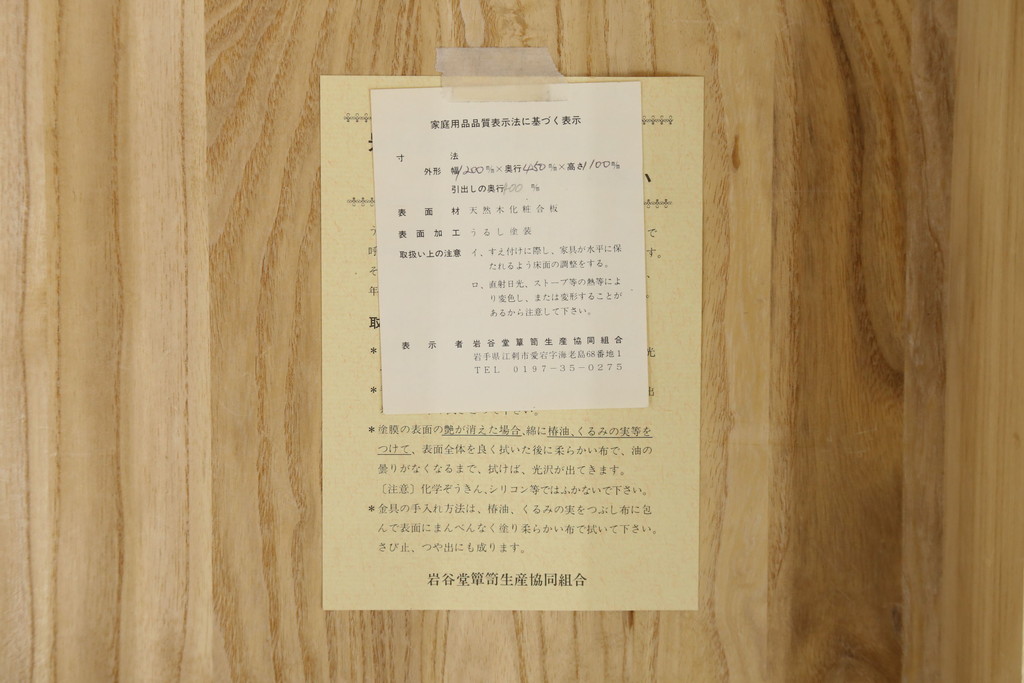 家庭用品品質表示法に基づく表示
寸法
外形 幅1200㎜×奥行450㎜×高さ1100㎜
引出しの奥行400㎜
表面材 天然木化粧合板
表面加工 うるし塗装
取扱い上の注意 イ、すえ付けに際し、家具が水平に保
たれるよう床面の調整をする。
ロ、直射日光、ストーブ等の熱等によ
り変色し、または変形することが
あるから注意して下さい。
表示者 岩谷堂簞笥生産協同組合
岩手県江刺市愛宕字海老島68番地1
TEL 0197-35-0275
*塗膜の表面の艶が消えた場合、綿に椿油、くるみの実等を
つけて、表面全体を良く拭いた後に柔らかい布で、油の
曇りがなくなるまで、拭けば、光沢が出てきます。
〔注意〕化学ぞうきん、シリコン等ではふかないで下さい。
*金具の手入れ方法は、椿油、くるみの実をつぶし布に包
んで表面にまんべんなく塗り柔らかい布で拭いて下さい。
さび止、つや出にも成ります。
岩谷堂簞笥生産協同組合